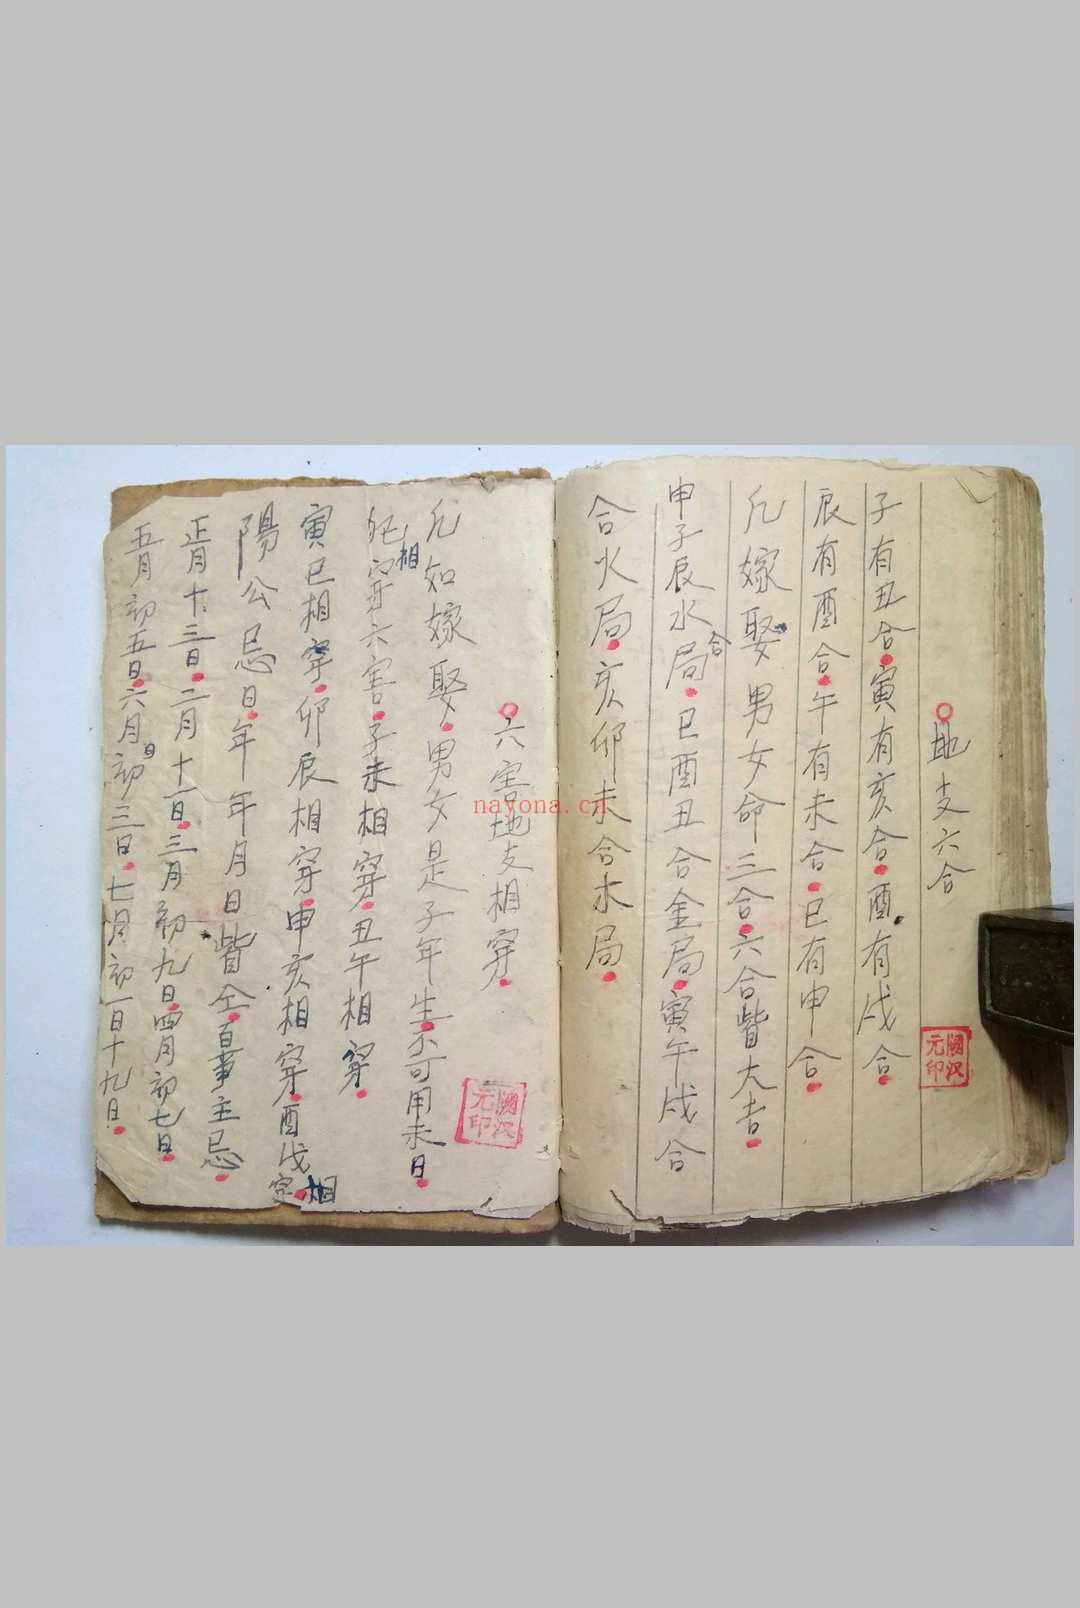 地支六合
子有丑合寅有亥合酉有戌合
辰有酉合午有未合巳有申合
凡嫁娶男女命三合六合皆大吉
申子辰合水局巳酉丑合金局寅午戌合
合火局亥卯未合木局
六害地支相穿
凡如嫁娶男女是子年生不可用未日
犯相穿六害子未相穿丑午相穿
寅巳相穿卯辰相穿申亥相穿酉戌相穿
陽公忌日年年月日皆仝百事主忌
正月十三日二月十一日三月初九日四月初七日
五月初五日六月初三日七月初一日十九日
元印
nayona.cn